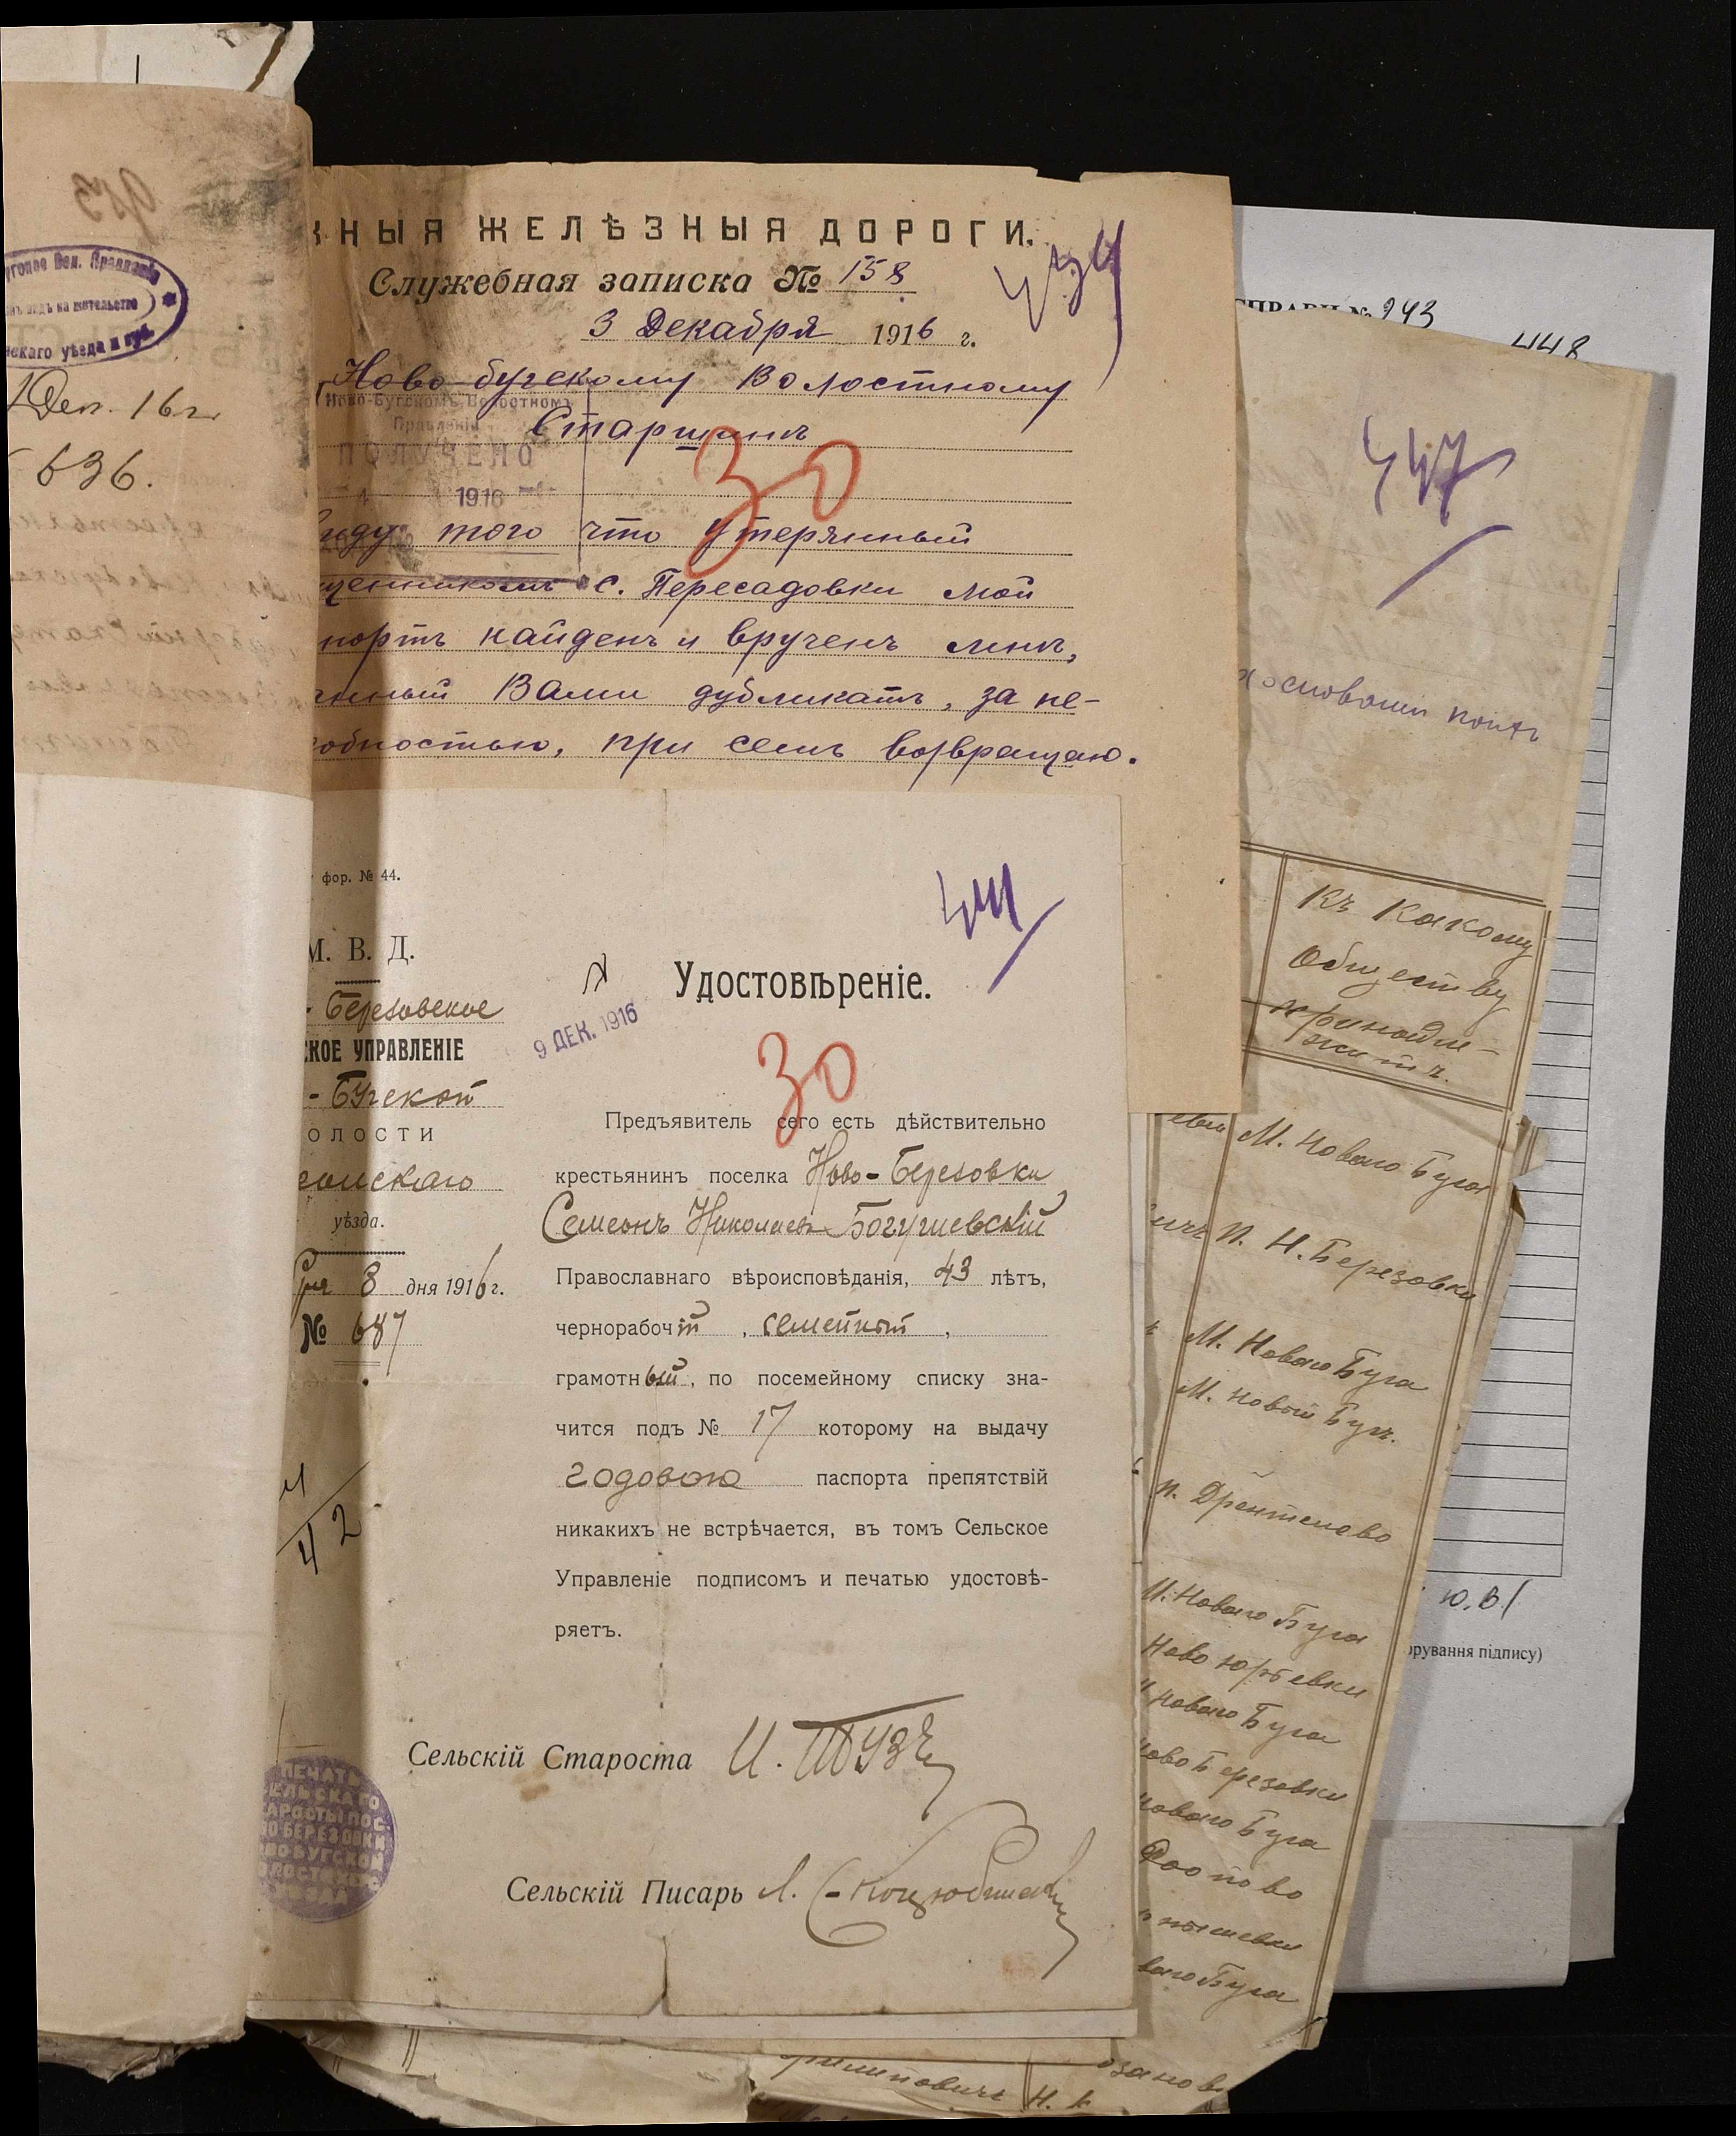 953
Вол. Правленіе
видъ на жительство
уѣзда и губ.
1 Дек. 16 г.
636.
НЫЯ ЖЕЛѢЗНЫЯ ДОРОГИ.
Служебная записка № 158
3 Декабря 1916 г.
Ново-бугскому Волостному
Старшинѣ
Ново-Бугскомъ Волостномъ
Правленіи
ПОЛУЧЕНО
1916
30
виду того что утерянный
щенникомъ с. Пересадовки мой
портъ найденъ и врученъ мнѣ,
нный Вами дубликатъ, за не-
обностью, при семъ возвращаю.
фор. № 44.
441
М. В. Д.
- Березовское
СКОЕ УПРАВЛЕНІЕ
- Бугской
ОЛОСТИ
сонскаго
уѣзда.
8 дня 1916 г.
№ 687
42
9 ДЕК. 1916
Удостовѣреніе.
30
Предъявитель сего есть дѣйствительно
крестьянинъ поселка Ново-Березовки
Семеонъ Николаевъ Богушевскій
Православнаго вѣроисповѣданія, 43 лѣтъ,
чернорабочій, семейный,
грамотный, по посемейному списку зна-
чится подъ № 17 которому на выдачу
годового паспорта препятствій
никакихъ не встрѣчается, въ томъ Сельское
Управленіе подписомъ и печатью удостовѣ-
ряетъ.
Сельскій Староста И. Тузъ
Сельскій Писарь Л.
ПЕЧАТЬ
ЕЛЬСКАГО
АРОСТЫ ПОС.
О БЕРЕЗОВКИ
ВО БУГСКОЙ
УѢЗДА
№ 243
448
447
основаніи
Къ какому
Обществу
принадле-
житъ.
М. Новаго Буга
П. Н. Березовки
М. Новаго Буга
М. Новый Бугъ.
п. Дрентелово
М. Новаго Буга
Ново Юрьевки
Новаго Буга
ово Березовки
Новаго Буга
ваго Буга
Ю.В./
рування підпису)
Н.